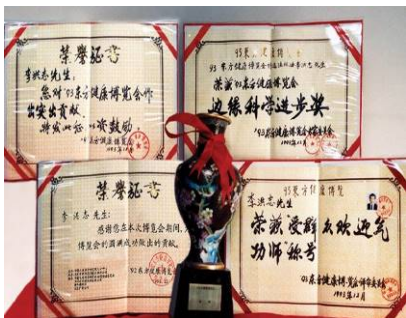 荣誉证书
李洪志先生：
您对'93东方健康博览会作
出突出贡献，
特发此证，以资鼓励。
'93东方健康博览会
1993年12月
'93东方健康博览会
荣获'93东方健康博览会
边缘科学进步奖
'93东方健康博览会
1993年12月
荣誉证书
李洪志先生：
感谢您在本次博览会期间，
博览会的圆满成功做出的贡献。
'92东方健康博览会
'93东方健康博览
李洪志先生
荣获受群众欢迎气
功师称号
'93东方健康博览会
1993年12月